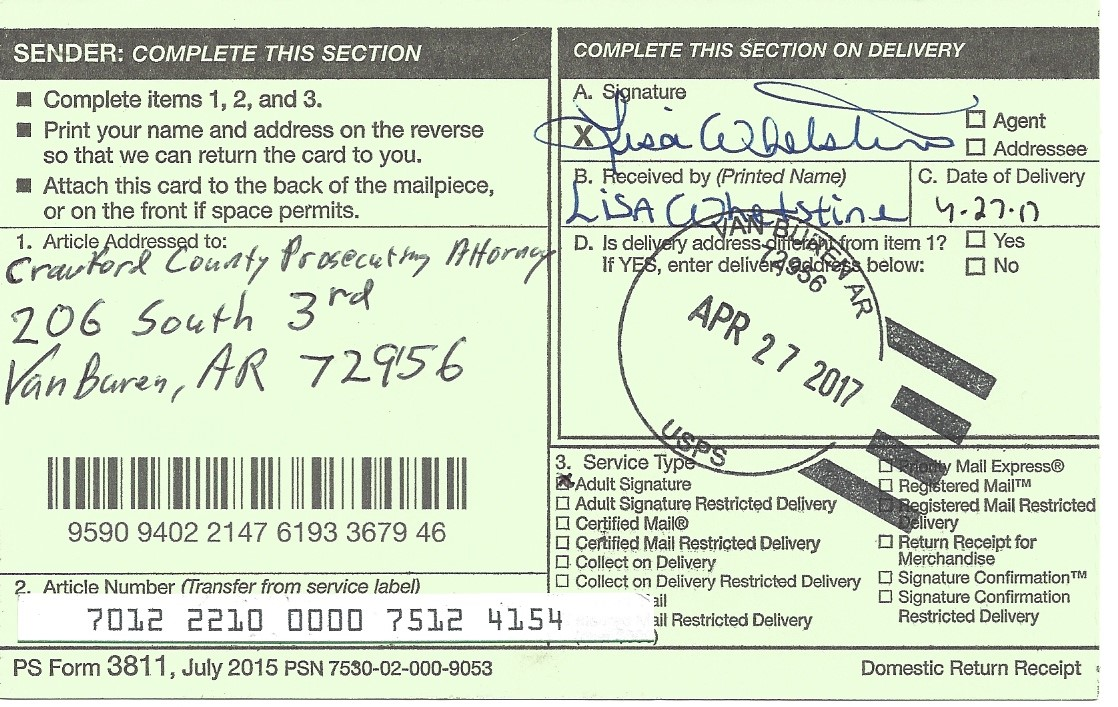 SENDER: COMPLETE THIS SECTION
■ Complete items 1, 2, and 3.
■ Print your name and address on the reverse
so that we can return the card to you.
■ Attach this card to the back of the mailpiece,
or on the front if space permits.
1. Article Addressed to:
Crawford County Prosecuting Attorney
206 South 3rd
Van Buren, AR 72956
9590 9402 2147 6193 3679 46
2. Article Number (Transfer from service label)
7012 2210 0000 7512 4154
COMPLETE THIS SECTION ON DELIVERY
A. Signature
X Lisa Whetstine
☐ Agent
☐ Addressee
B. Received by (Printed Name)
LiSA Whetstine
C. Date of Delivery
4-27-17
D. Is delivery address different from item 1? ☐ Yes
If YES, enter delivery address below: ☐ No
VAN BUREN AR
72956
APR 27 2017
USPS
3. Service Type
☒ Adult Signature
☐ Adult Signature Restricted Delivery
☐ Certified Mail®
☐ Certified Mail Restricted Delivery
☐ Collect on Delivery
☐ Collect on Delivery Restricted Delivery
ail
ail Restricted Delivery
☐ Priority Mail Express®
☐ Registered Mail™
☐ Registered Mail Restricted
Delivery
☐ Return Receipt for
Merchandise
☐ Signature Confirmation™
☐ Signature Confirmation
Restricted Delivery
PS Form 3811, July 2015 PSN 7530-02-000-9053
Domestic Return Receipt